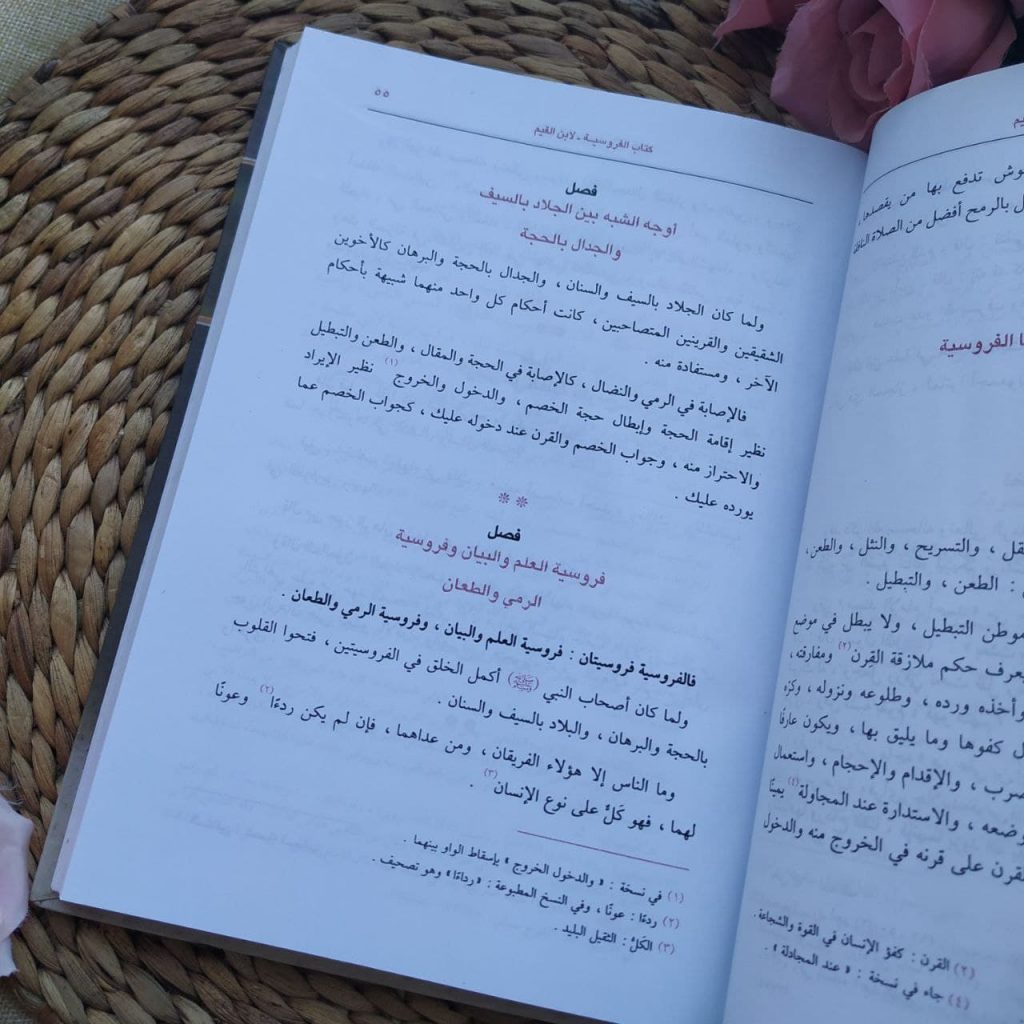 قيم
وش تدفع بها من يقصدها
ل بالرمح أفضل من الصلاة النافلة
ا الفروسية
قل ، والتسريح ، والنثل ، والطعن ،
: الطعن ، والتبطيل .
موطن التبطيل ، ولا يبطل في موضع
يعرف حكم ملازقة القِرن(٢) ومفارقته ،
وأخذه ورده ، وطلوعه ونزوله ، وكرّه
ل كفوها وما يليق بها ، ويكون عارفًا
ضرب ، والإقدام والإحجام ، واستعمال
وضعه ، والاستدارة عند المجاولة(٤) يمينًا
لقرن على قرنه في الخروج منه والدخول
(٢) القرن : كفؤ الإنسان في القوة والشجاعة .
(٤) جاء في نسخة : « عند المجادلة » .
كتاب الفروسية - لابن القيم
٥٥
فصل
أوجه الشبه بين الجلاد بالسيف
والجدال بالحجة
ولما كان الجلاد بالسيف والسنان ، والجدال بالحجة والبرهان كالأخوين
الشقيقين والقرينين المتصاحبين ، كانت أحكام كل واحد منهما شبيهة بأحكام
الآخر ، ومستفادة منه .
فالإصابة في الرمي والنضال ، كالإصابة في الحجة والمقال ، والطعن والتبطيل
نظير إقامة الحجة وإبطال حجة الخصم ، والدخول والخروج(١) نظير الإيراد
والاحتراز منه ، وجواب الخصم والقرن عند دخوله عليك ، كجواب الخصم عما
يورده عليك .
**
فصل
فروسية العلم والبيان وفروسية
الرمي والطعان
فالفروسية فروسيتان : فروسية العلم والبيان ، وفروسية الرمي والطعان .
ولما كان أصحاب النبي (ﷺ) أكمل الخلق في الفروسيتين ، فتحوا القلوب
بالحجة والبرهان ، والبلاد بالسيف والسنان .
وما الناس إلا هؤلاء الفريقان ، ومن عداهما ، فإن لم يكن ردءًا(٢) وعونًا
لهما ، فهو كَلٌّ على نوع الإنسان(٣) .
(١) في نسخة : « والدخول الخروج » بإسقاط الواو بينهما .
(٢) ردءًا : عونًا ، وفي النسخ المطبوعة : « رداءًا » وهو تصحيف .
(٣) الكَلُّ : الثقيل البليد .